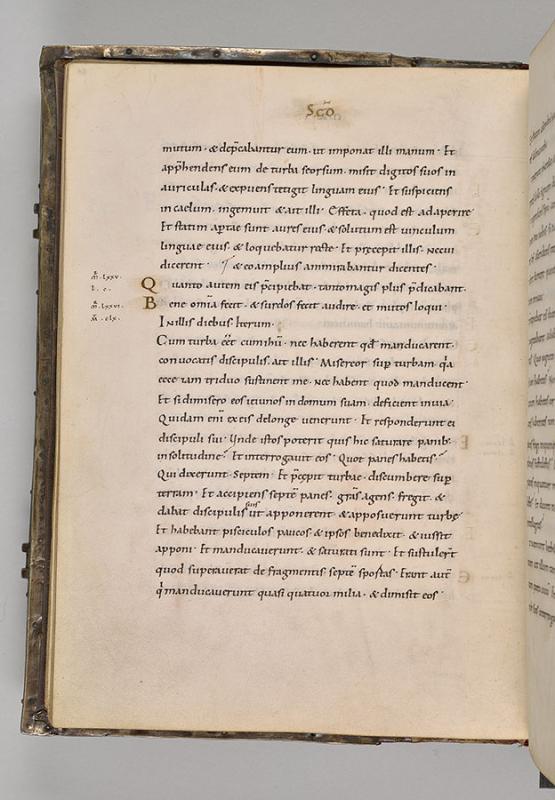 Scdo
mutum · & dep̄cabantur eum · ut imponat illi manum · Et
app̄hendens eum de turba seorsum · misit digitos suos in
auriculas · & expuens tetigit linguam eius · Et suspiciens
in caelum · ingemuit & ait illi · Effeta · quod est adaperire ·
Et statim apertae sunt aures eius · & solutum est uinculum
linguae eius · & loquebatur recte · Et precepit illis · ne cui
dicerent · & eo amplius ammirabantur dicentes ·
m̄ · lxxv ·
l · c ·
Quanto autem eis p̄cipiebat · tanto magis plus p̄dicabant ·
m̄ · lxxvi ·
m̄ · clx ·
Bene om̄ia fecit · & surdos fecit audire · et mutos loqui ·
In illis diebus Iterum ·
Cum turba eēt cum ihū · nec haberent qd̄ manducarent ·
conuocatis discipulis · ait illis · Misereor sup̄ turbam · q̄a
ecce iam triduo sustinent me · nec habent quod manducent ·
Et si dimisero eos ieiunos in domum suam · deficient in uia ·
Quidam enī ex eis de longe uenerunt · Et responderunt ei
discipuli sui · Unde istos poterit quis hic saturare panib ·
in solitudine · Et interrogauit eos · Quot panes habetis ·
Qui dixerunt · Septem · Et p̄cepit turbae · discumbere sup̄
terram · Et accipiens septē panes · grās agens · fregit · &
dabat discipulis suis ut apponerent · & apposuerunt turbę ·
Et habebant pisciculos paucos & ipsos benedixit · & iussit
apponi · Et manducauerunt · & saturati sunt · Et sustuler̄t
quod superauerat de fragmentis septē sportas · Erant autē
q̄ manducauerunt quasi quatuor milia · & dimisit eos ·